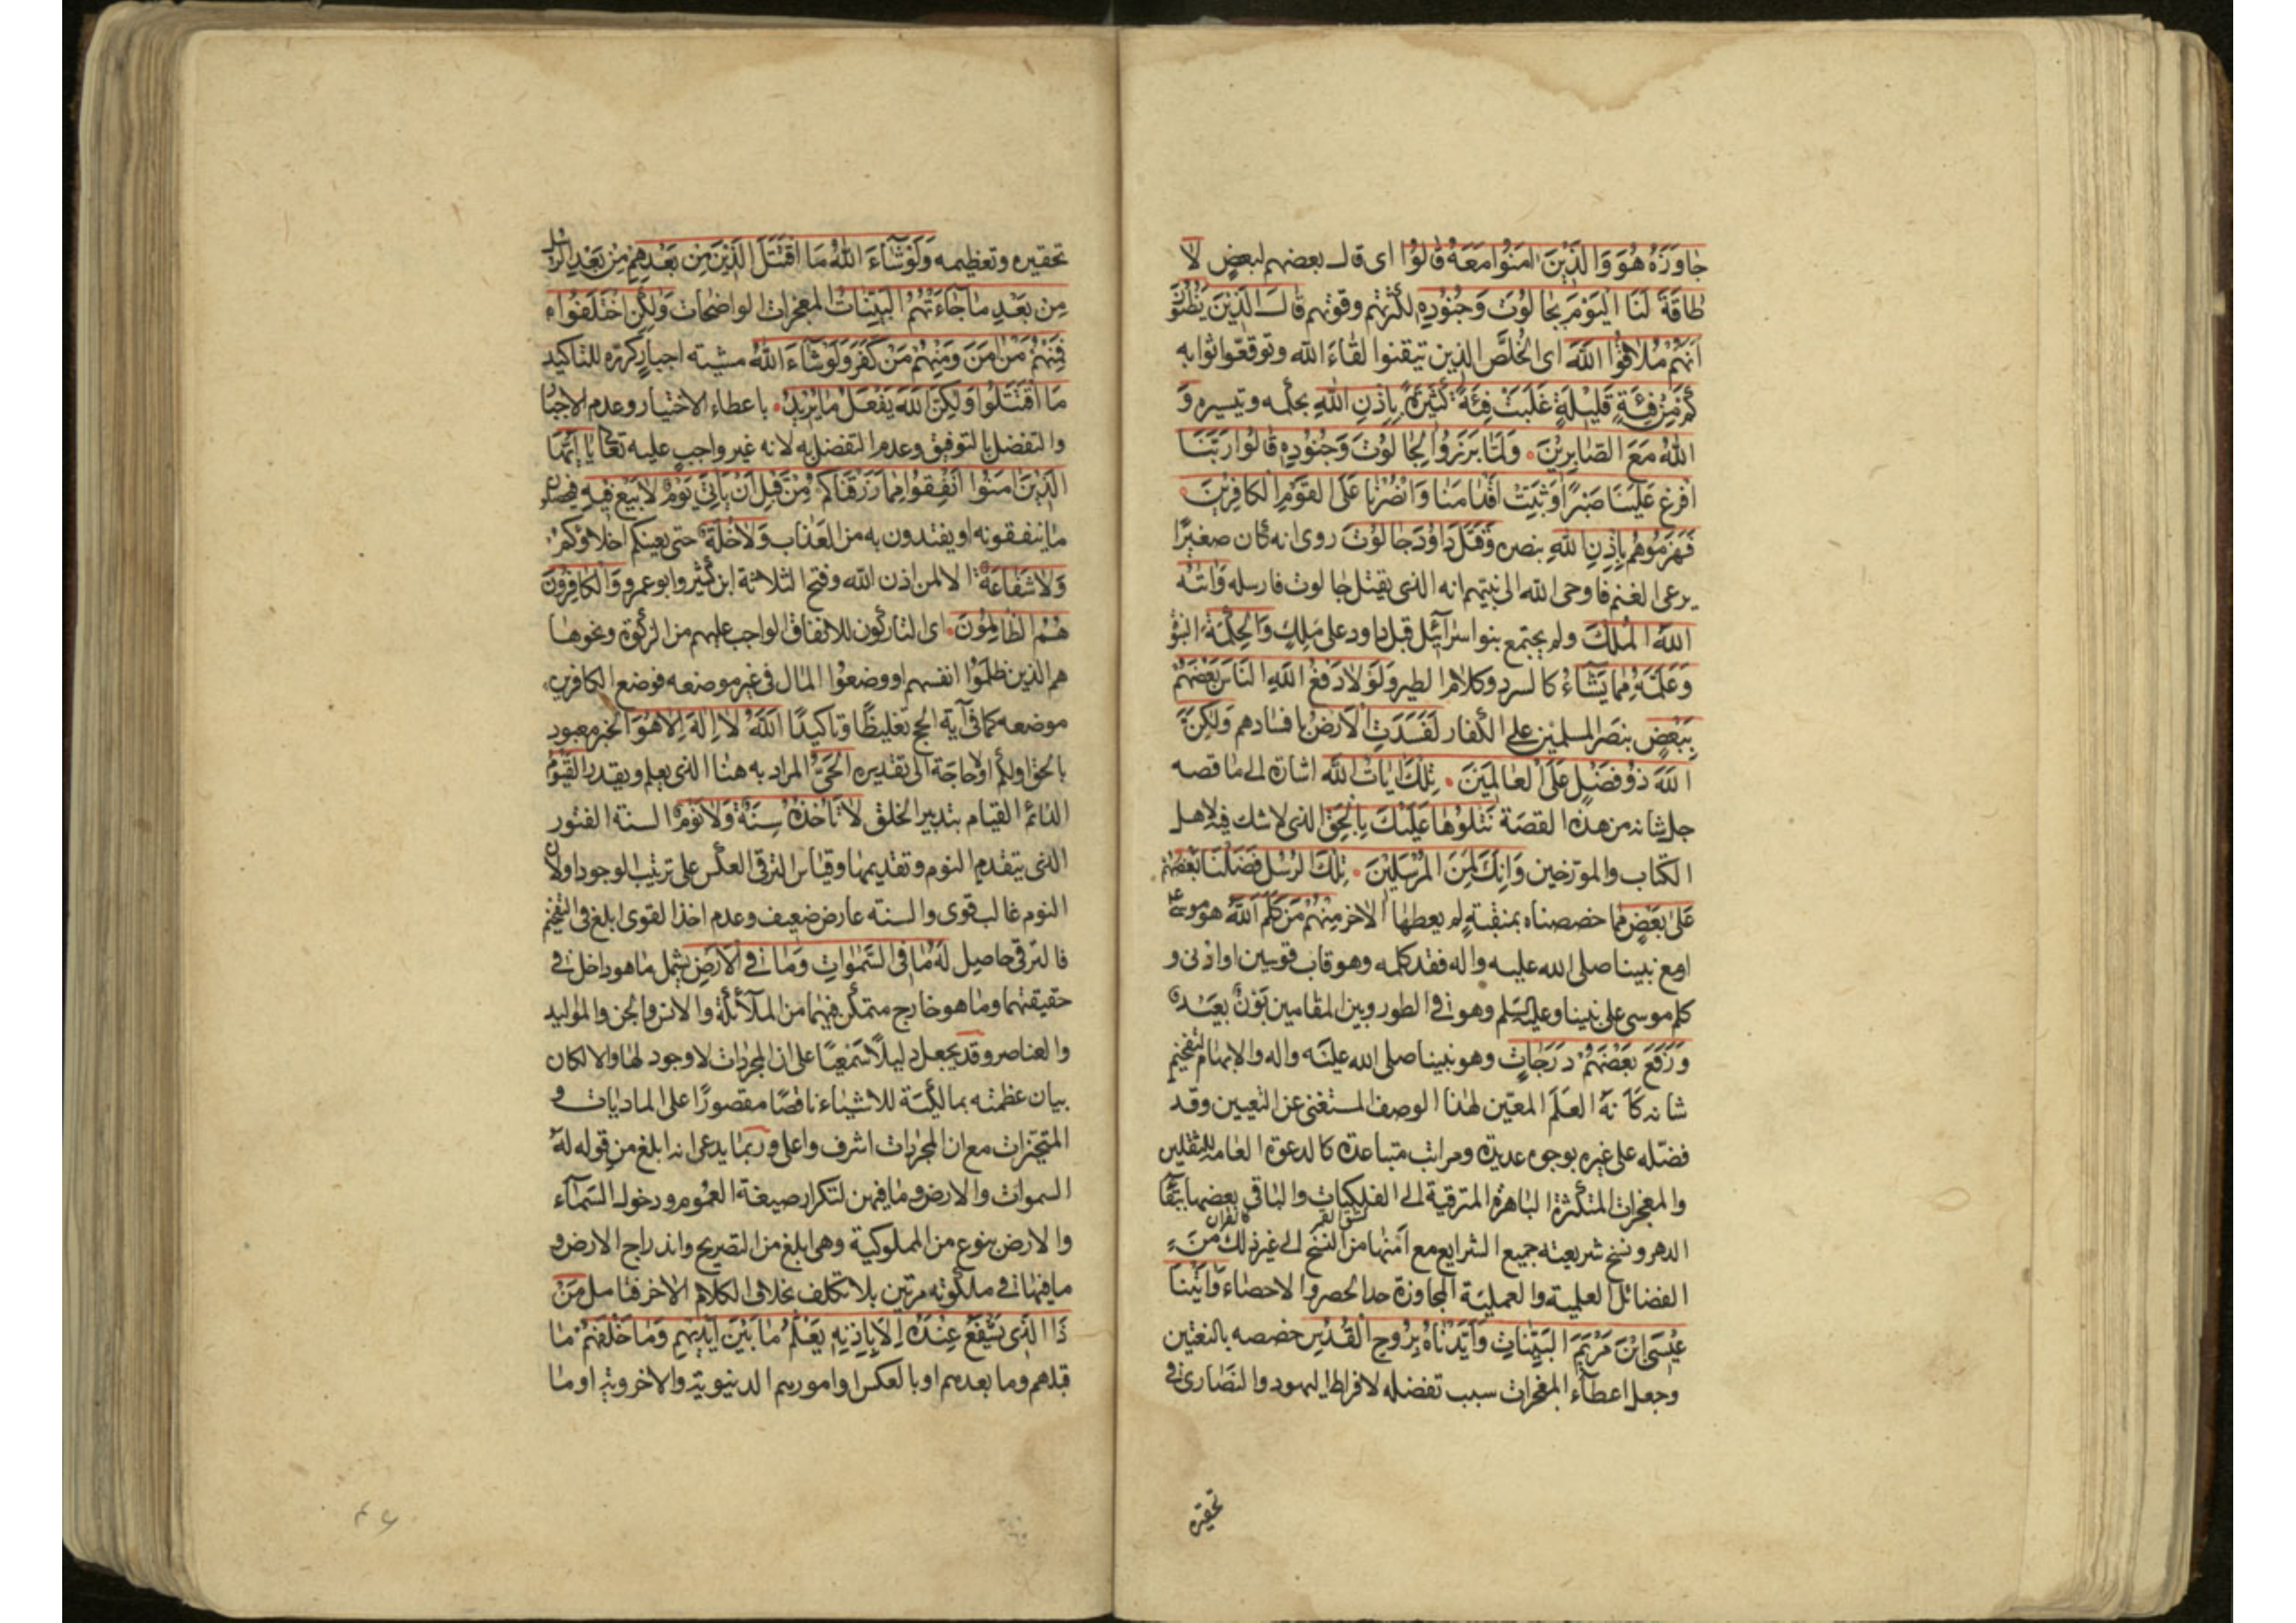 جاوَزَهُ هُوَ وَالَّذِينَ امَنُوا مَعَهُ قالُوا اى قال بعضهم لبعضٍ لا
طاقَةَ لَنَا اليَوْمَ بِجالُوتَ وَجُنُودِهِ لكثرتهم وقوتهم قالَ الَّذِينَ يَظُنُّونَ
اَنَّهُمْ مُلاقُوا اللَّهِ اى الخُلَّص الذين تيقنوا لقاءَ الله وتوقعّوا ثوابه
كَمْ مِنْ فِئَةٍ قَلِيلَةٍ غَلَبَتْ فِئَةً كَثِيرَةً بِإِذْنِ اللَّهِ بحكمه وتيسيره وَ
اللَّهُ مَعَ الصَّابِرِينَ وَلَمَّا بَرَزُوا لِجالُوتَ وَجُنُودِهِ قالُوا رَبَّنَا
افْرِغْ عَلَيْنَا صَبْرًا وَثَبِّتْ اَقْدامَنا وَانْصُرْنا عَلَى القَوْمِ الكافِرِينَ
فَهَزَمُوهُمْ بِإِذْنِ اللَّهِ بنصره وَقَتَلَ داوُدُ جالُوتَ روى انه كان صغيرًا
يرعى الغنم فاوحى الله الى نبيّهم انه الذى يقتل جالوت فارسله وَاتيهُ
اللَّهُ المُلْكَ ولم يجتمع بنو اسرآئيل قبل داود على مَلِكٍ وَالحِكْمَةَ النبوّة
وَعَلَّمَهُ مِمَّا يَشَاءُ كالسرد وكلام الطير وَلَوْلا دَفْعُ اللَّهِ النَّاسَ بَعْضَهُمْ
بِبَعْضٍ بنصر المسلمين على الكفار لَفَسَدَتِ الاَرْضُ بافسادهم وَلكِنَّ
اللَّهَ ذُو فَضْلٍ عَلَى العالَمِينَ تِلْكَ اياتُ اللَّهِ اشارة الى ما قصه
جل شانه من هذه القصة نَتْلُوها عَلَيْكَ بِالحَقِّ الذى لا شك فيه لاهل
الكتاب والمورّخين وَاِنَّكَ لَمِنَ المُرْسَلِينَ تِلْكَ الرُّسُلُ فَضَّلْنا بَعْضَهُمْ
عَلى بَعْضٍ بما خصصناه بمنقبةٍ لم يعطها الاخر مِنْهُمْ مَنْ كَلَّمَ اللَّهُ هو موسى ع
او مع نبينا صلى الله عليه واله فقد كلمه وهو قاب قوسين او ادنى و
كلم موسى على نبينا وعليه السّلم وهو فى الطور وبين المقامين بَوْنٌ بعيد
وَرَفَعَ بَعْضَهُمْ دَرَجاتٍ وهو نبينا صلى الله عليه واله والابهام لتفخيم
شانه كَاَنَّهُ العلَم المعين لهذا الوصف المستغنى عن التعيين وقد
فضّله على غيره بوجوه عديدة ومراتب متباعدة كالدعوة العامة للثقلين
والمعجزات المتكثرة الباهرة المترقية الى الفلكيات والباقى بعضها ببقا
كشق القمر كالقران
الدهر ونسخ شريعته جميع الشرايع مع امنها من النسخ الى غير ذلك من
الفضائل العلمية والعملية المجاوزة حد الحصر والاحصاء وَاتَيْنا
عِيسَى ابْنَ مَرْيَمَ البَيِّناتِ وَاَيَّدْناهُ بِرُوحِ القُدُسِ خصصه بالتعيين
وجعل اعطآء المعجزات سبب تفضله لافراط اليهود والنصارى فى
تحقيره
تحقيره وتعظيمه وَلَوْ شَاءَ اللَّهُ مَا اقْتَتَلَ الَّذِينَ مِنْ بَعْدِهِمْ مِنْ بَعْدِ الرسل
مِنْ بَعْدِ ما جاءَتْهُمُ البَيِّناتُ المعجزات الواضحات وَلكِنِ اخْتَلَفُوا
فَمِنْهُمْ مَنْ امَنَ وَمِنْهُمْ مَنْ كَفَرَ وَلَوْ شَاءَ اللَّهُ مشيته اجبارٍ كرّره للتاكيد
مَا اقْتَتَلُوا وَلكِنَّ اللَّهَ يَفْعَلُ ما يُرِيدُ باعطاء الاختيار وعدم الاجبار
والتفضل بالتوفيق وعدم التفضل به لانه غير واجبٍ عليه تعالى يا اَيُّهَا
الَّذِينَ امَنُوا اَنْفِقُوا مِمَّا رَزَقْناكُمْ مِنْ قَبْلِ اَنْ يَأْتِيَ يَوْمٌ لا بَيْعٌ فِيهِ فيحصلو
ما ينفقونه او يفتدون به من العذاب وَلا خُلَّةٌ حتى يعينكم اخلاؤكم
وَلا شَفاعَةٌ الا لمن اذن الله وفتح الثلاثة ابن كثير وابو عمرو وَالكافِرُونَ
هُمُ الظَّالِمُونَ اى التاركون للانفاق الواجب عليهم من الزكوة ونحوها
هم الذين ظلمُوا انفسهم او وضعوُا المال فى غير موضعه فوضع الكافرين
موضعه كما فى آية الحج تغليظًا وتاكيدًا اللَّهُ لا اِلهَ اِلاَّ هُوَ الخبر معبود
بالحق او لكم او لا حاجة الى تقديره الحَيُّ المراد به هنا الذى يعلم ويقدر القَيُّومُ
الدائم القيام بتدبير الخلق لا تَأْخُذُهُ سِنَةٌ وَلا نَوْمٌ السنة الفتور
الذى يتقدم النوم وتقديمها وقياس الترقى العكس على ترتيب الوجود او لان
النوم غالب قوى والسنة عارض ضعيف وعدم اخذ القوى ابلغ فى التفخيم
فالترقى حاصل لَهُ ما فِى السَّمواتِ وَما فِى الاَرْضِ يشمل ما هو داخل فى
حقيقتهما وما هو خارج متمكن فيهما من الملآئكة والانس والجن والمواليد
والعناصر وقد يجعل دليلًا سَمعيًا على ان المجردات لا وجود لها والا لكان
بيان عظمته بمالكيّة للاشياء ناقصًا مقصورًا على الماديات و
المتحيّزات مع ان المجردات اشرف واعلى وربما يدعى انه ابلغ من قوله له
السموات والارض وما فيهن لتكرار صيغة العموم ودخول السّمآء
والارض بنوع من المملوكية وهى ابلغ من التصريح واندراج الارض و
ما فيها فى ملكوته مرتين بلا تكلف بخلاف الكلام الاخر فتامل مَنْ
ذَا الَّذِى يَشْفَعُ عِنْدَهُ اِلاَّ بِاِذْنِهِ يَعْلَمُ ما بَيْنَ اَيْدِيهِمْ وَما خَلْفَهُمْ ما
قبلهم وما بعدهم او بالعكس او امورهم الدنيوية والاخروية او ما